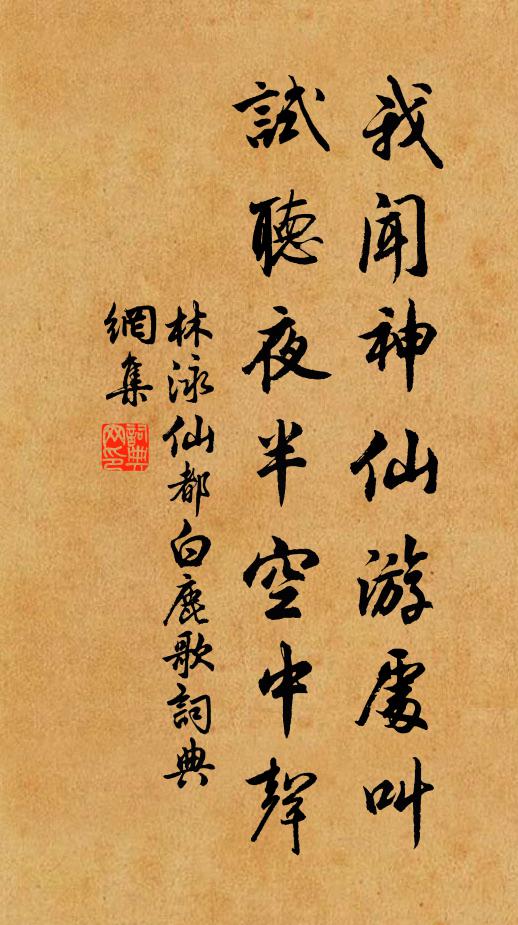 我聞神仙游處叫
試聽夜半空中聲
林泳仙都白鹿歌詞典
網集
詞典網印